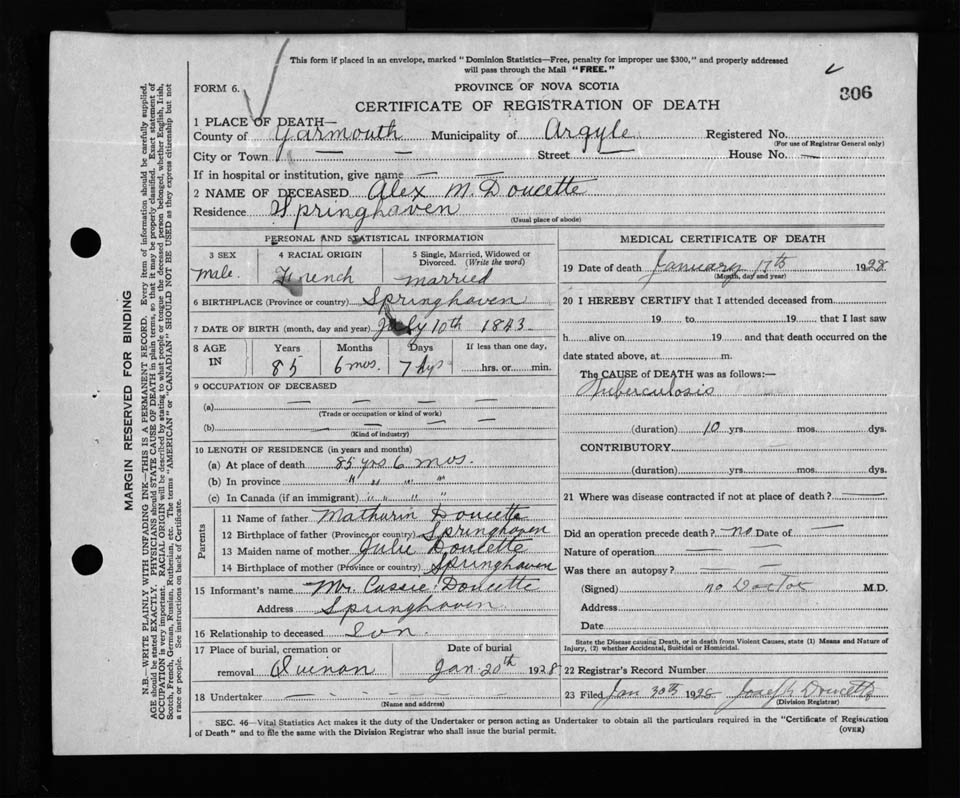 This form if placed in an envelope, marked "Dominion Statistics—Free, penalty for improper use $300," and properly addressed
will pass through the Mail "FREE."
FORM 6.
PROVINCE OF NOVA SCOTIA
306
CERTIFICATE OF REGISTRATION OF DEATH
1 PLACE OF DEATH—
County of Yarmouth Municipality of Argyle Registered No.
(For use of Registrar General only)
City or Town — — Street — House No. —
If in hospital or institution, give name — —
2 NAME OF DECEASED Alex M. Doucette
Residence Springhaven
(Usual place of abode)
PERSONAL AND STATISTICAL INFORMATION
3 SEX 4 RACIAL ORIGIN 5 Single, Married, Widowed or
Divorced. (Write the word)
Male. French married
6 BIRTHPLACE (Province or country) Springhaven
7 DATE OF BIRTH (month, day and year) July 10th 1843
8 AGE IN Years Months Days If less than one day,
85 6 mos. 7 dys hrs. or min.
9 OCCUPATION OF DECEASED
(a) — — —
(Trade or occupation or kind of work)
(b) — — —
(Kind of industry)
10 LENGTH OF RESIDENCE (in years and months)
(a) At place of death 85 yrs 6 mos.
(b) In province " " " "
(c) In Canada (if an immigrant) " " " "
Parents
11 Name of father Mathurin Doucette
12 Birthplace of father (Province or country) Springhaven
13 Maiden name of mother Julie Doucette
14 Birthplace of mother (Province or country) Springhaven
15 Informant's name Mr. Cassie Doucette
Address Springhaven
16 Relationship to deceased Son.
17 Place of burial, cremation or Date of burial
removal Quinan Jan. 20th 1928
18 Undertaker — — — — —
(Name and address)
MEDICAL CERTIFICATE OF DEATH
19 Date of death January 17th 1928
(Month, day and year)
20 I HEREBY CERTIFY that I attended deceased from
19 to 19 that I last saw
h alive on 19 and that death occurred on the
date stated above, at m.
The CAUSE of DEATH was as follows:—
Tuberculosis
(duration) 10 yrs. mos. dys.
CONTRIBUTORY —
(duration) yrs. mos. dys.
21 Where was disease contracted if not at place of death? —
Did an operation precede death? no Date of —
Nature of operation — —
Was there an autopsy? — —
(Signed) no Doctor M.D.
Address
Date
State the Disease causing Death, or in death from Violent Causes, state (1) Means and Nature of
Injury, (2) whether Accidental, Suicidal or Homicidal.
22 Registrar's Record Number
23 Filed Jan 30th 1928 Joseph Doucette
(Division Registrar)
SEC. 46—Vital Statistics Act makes it the duty of the Undertaker or person acting as Undertaker to obtain all the particulars required in the "Certificate of Registration
of Death" and to file the same with the Division Registrar who shall issue the burial permit.
(OVER)
MARGIN RESERVED FOR BINDING
N.B.—WRITE PLAINLY, WITH UNFADING INK—THIS IS A PERMANENT RECORD. Every item of information should be carefully supplied.
AGE should be stated EXACTLY. PHYSICIANS should STATE CAUSE OF DEATH in plain terms, so that it may be properly classified. Exact statement of
OCCUPATION is very important. RACIAL ORIGIN will be described by stating to what people or tongue the deceased person belonged, whether English, Irish,
Scotch, French, German, Russian, Ruthenian, etc. The terms "AMERICAN" or "CANADIAN" SHOULD NOT BE USED as they express citizenship but not
a race or people. See instructions on back of Certificate.